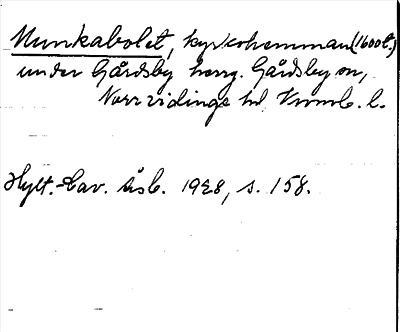 Munkabolet, kyrkohemman (1600t.)
under Gårdsby herrg. Gårdsby sn,
Norrvidinge hd, Kronob. l.
Hylt.-Cav. Årsb. 1928, s. 158.